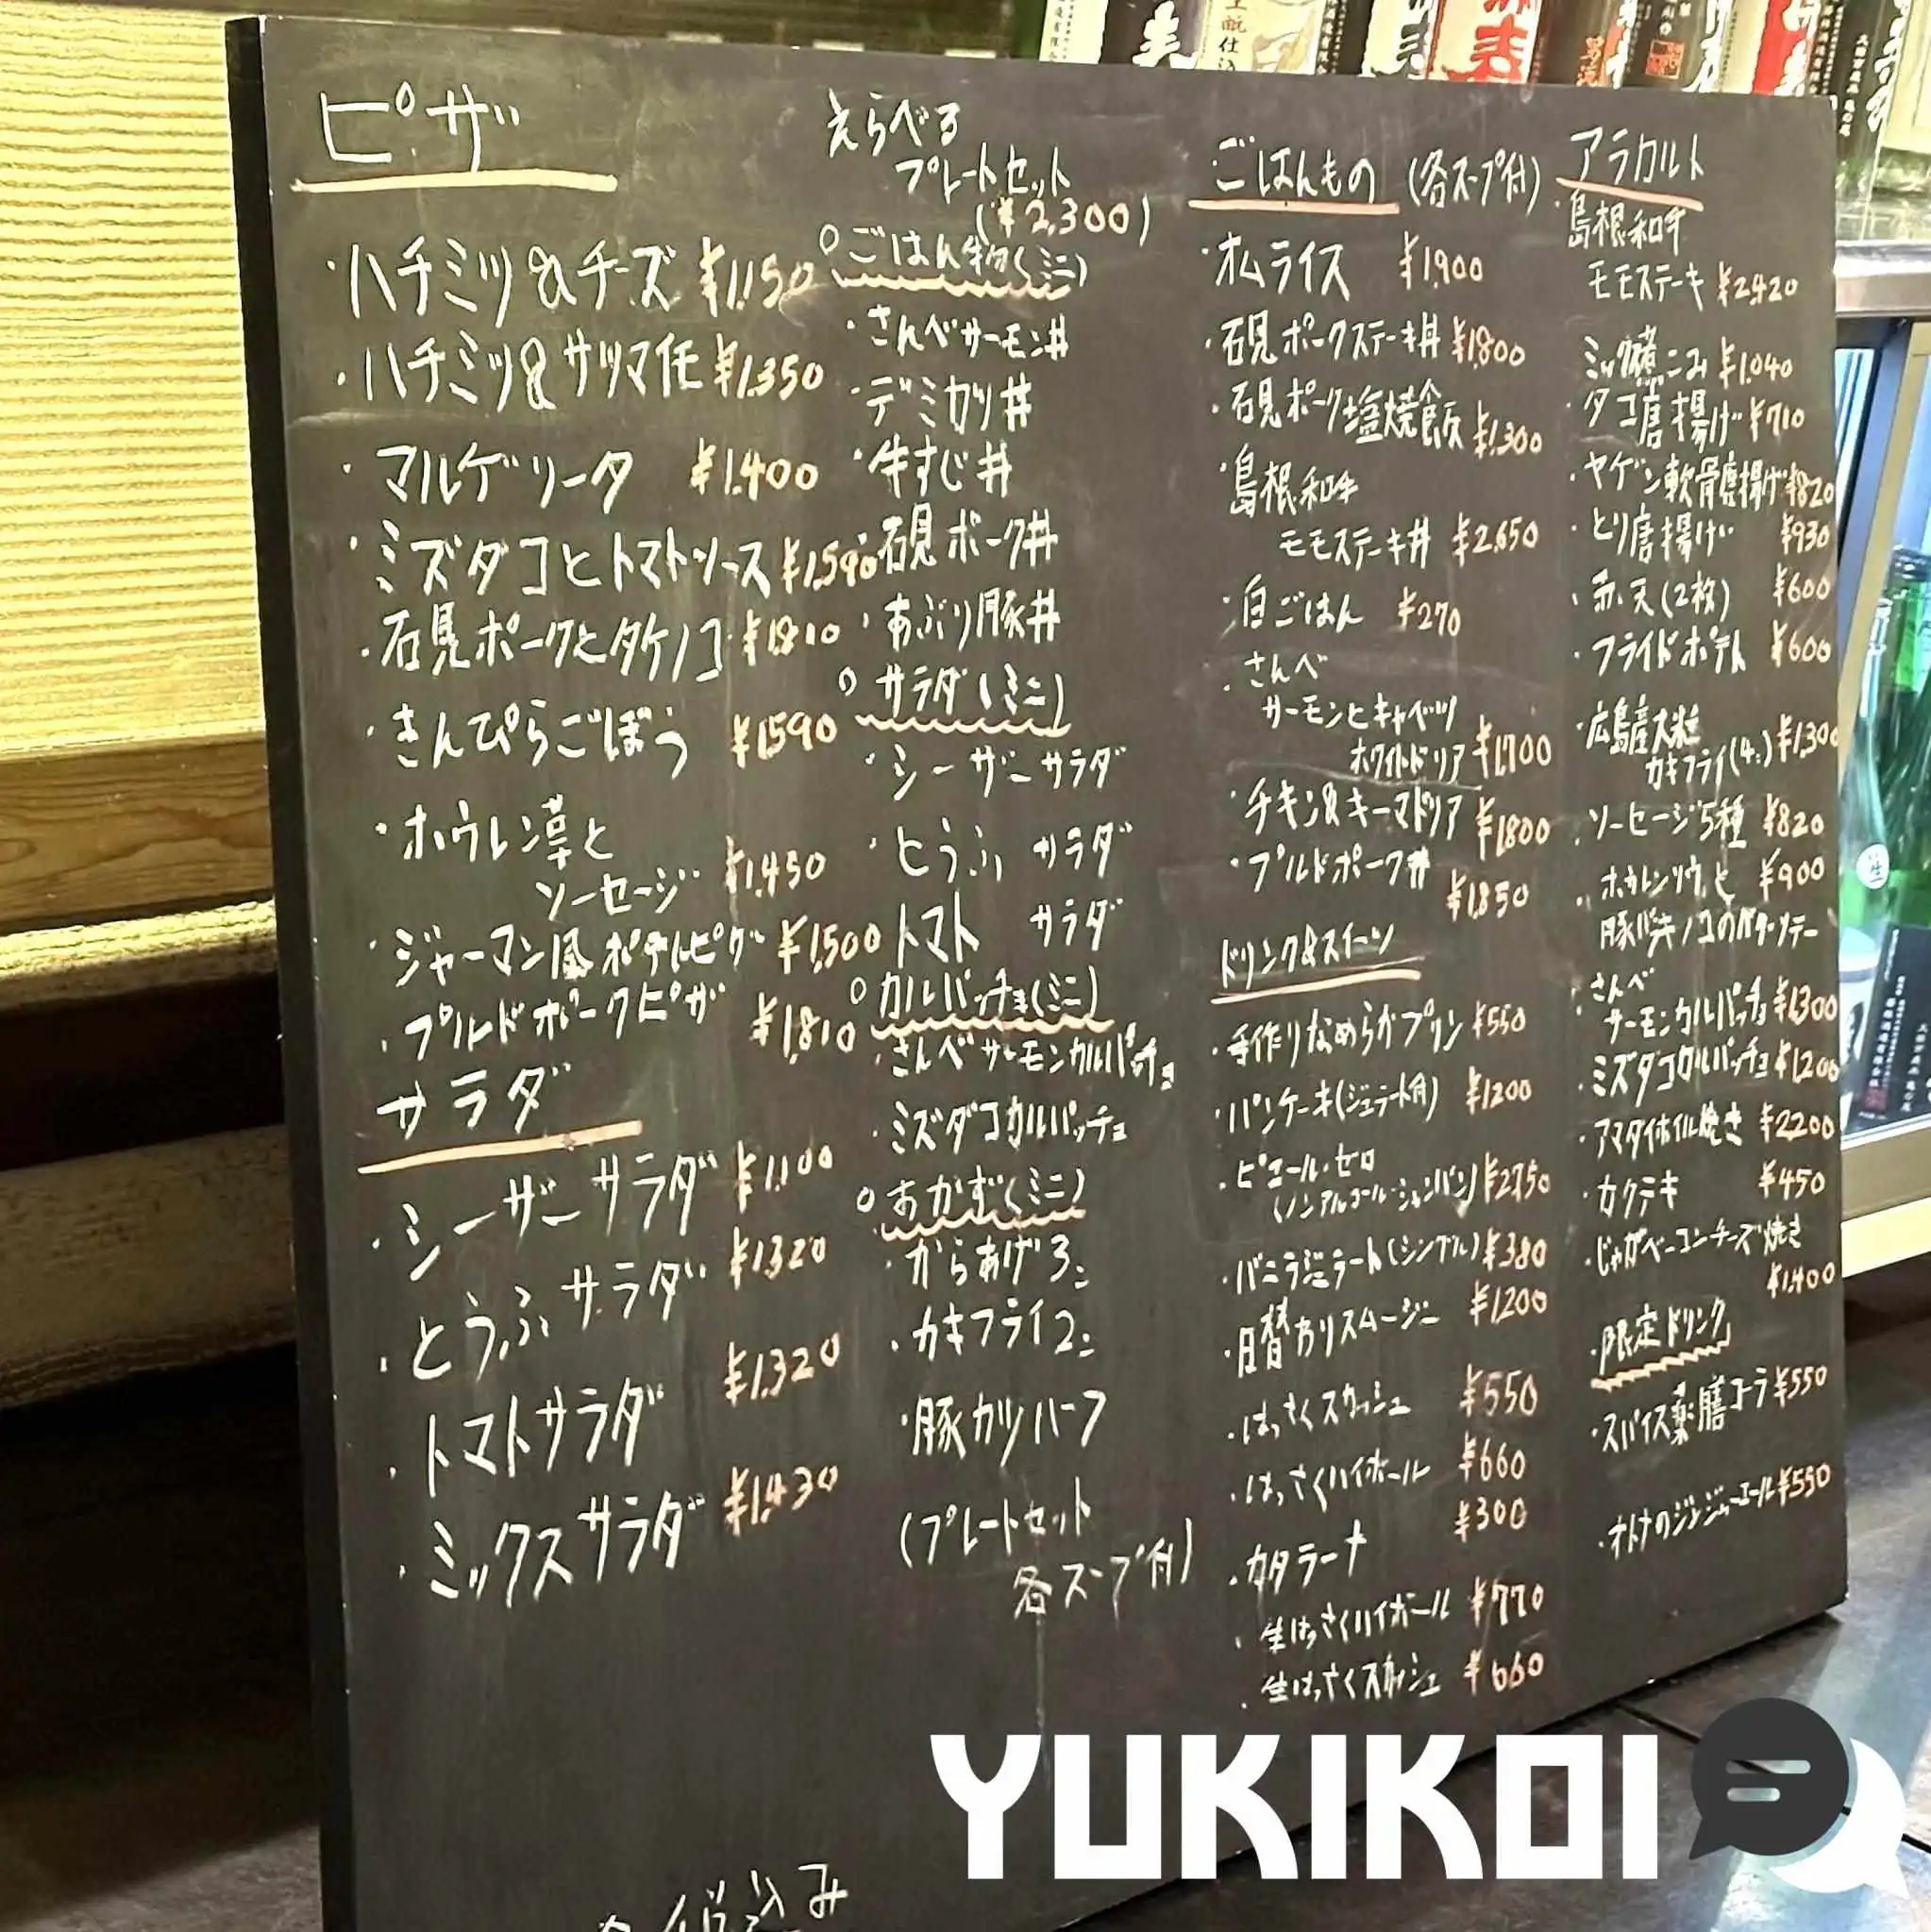 ピザ
・ハチミツ&チーズ ¥1,150
・ハチミツ&サツマ芋 ¥1,350
・マルゲリータ ¥1,400
・ミズダコとトマトソース ¥1,590
・石見ポークとタケノコ ¥1810
・きんぴらごぼう ¥1590
・ホウレン草と
ソーセージ ¥1,450
・ジャーマン風ポテトピザ ¥1,500
・プルドポークピザ ¥1,810
サラダ
・シーザーサラダ ¥1,100
・とうふサラダ ¥1320
・トマトサラダ ¥1,320
・ミックスサラダ ¥1,430
税込み
えらべる
プレートセット
(¥2,300)
○ごはん物(ミニ)
・さんべサーモン丼
・デミカツ丼
・牛すじ丼
・石見ポーク丼
・あぶり豚丼
○サラダ(ミニ)
・シーザーサラダ
・とうふ サラダ
トマト サラダ
○カルパッチョ(ミニ)
・さんべサーモンカルパッチョ
・ミズダコカルパッチョ
○おかず(ミニ)
・からあげ3コ
・カキフライ2コ
・豚カツハーフ
(プレートセット
各スープ付)
ごはんもの (各スープ付)
・オムライス ¥1,900
・石見ポークステーキ丼 ¥1800
・石見ポーク塩焼飯 ¥1,300
・島根和牛
モモステーキ丼 ¥2,650
・白ごはん ¥270
・さんべ
サーモンとキャベツ
ホワイトドリア ¥1,700
・チキン&キーマドリア ¥1800
・プルドポーク丼 ¥1,850
ドリンク&スイーツ
・手作りなめらかプリン ¥550
・パンケーキ(ジェラート付) ¥1200
・ピエール・ゼロ
(ノンアルコール・シャンパン) ¥2,750
・バニラジェラート(シングル) ¥380
・日替わりスムージー ¥1200
・はっさくスカッシュ ¥550
・はっさくハイボール ¥660
・カタラーナ ¥300
・生はっさくハイボール ¥770
・生はっさくスカッシュ ¥660
アラカルト
・島根和牛
モモステーキ ¥2420
ミックス煮こみ ¥1,040
・タコ唐揚げ ¥710
・ヤゲン軟骨唐揚げ ¥820
・とり唐揚げ ¥930
・赤天(2枚) ¥600
・フライドポテト ¥600
・広島産大粒
カキフライ(4コ) ¥1,300
・ソーセージ5種 ¥820
・ホウレンソウと ¥900
豚バラキノコのバターソテー
・さんべ
サーモンカルパッチョ ¥1,300
・ミズダコカルパッチョ ¥1,200
・アマダイホイル焼き ¥2200
・カクテキ ¥450
・じゃがベーコンチーズ焼き
¥1,400
・「限定ドリンク」
・スパイス薬膳コーラ ¥550
・オトナのジンジャーエール ¥550
YUKIKOI